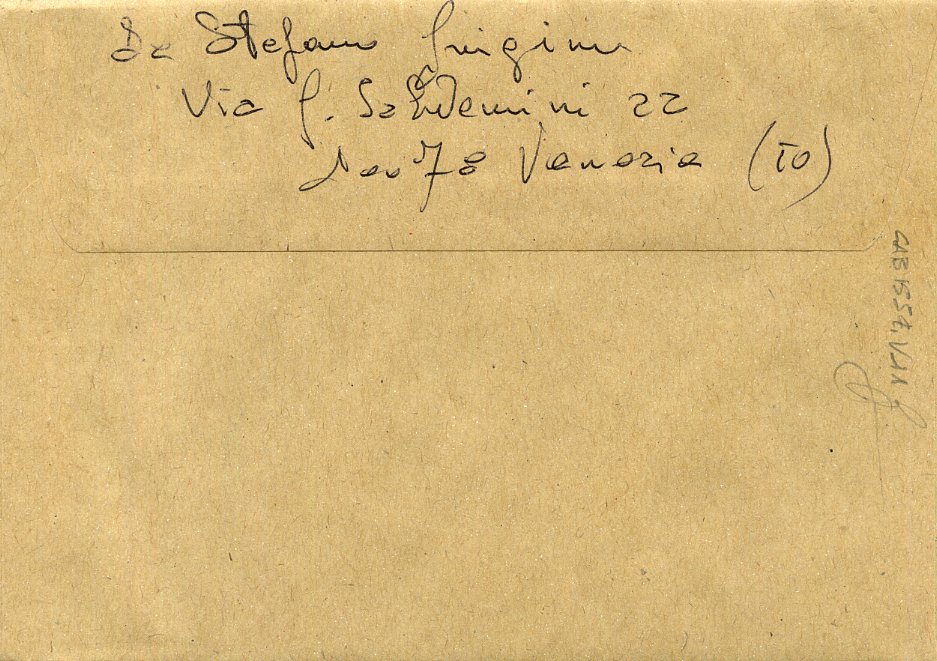 De Stefano Luigina
Via G. Salvemini 22
10078 Venaria (TO)